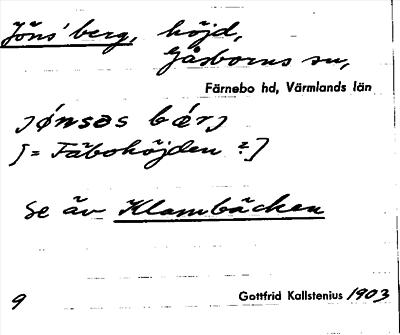 Jöns'berg, höjd,
Gåsborns sn,
Färnebo hd, Värmlands län
jónsas bǽrj
[= Fäbohöjden ?]
Se äv Klambäcken
9
Gottfrid Kallstenius 1903